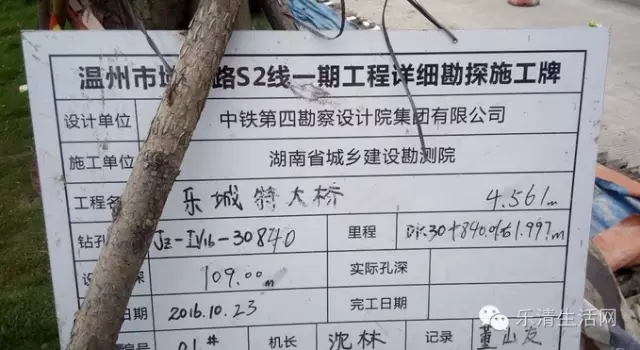 温州市域 路S2线一期工程详细勘探施工牌
设计单位 中铁第四勘察设计院集团有限公司
施工单位 湖南省城乡建设勘测院
工程名 乐城特大桥 4.561m
钻孔 Jz-IV16-30840 里程 DK30+840.0右1.997m
设 深 109.00m 实际孔深
日期 2016.10.23 完工日期
编号 01# 机长 沈林 记录 董山友
乐清生活网